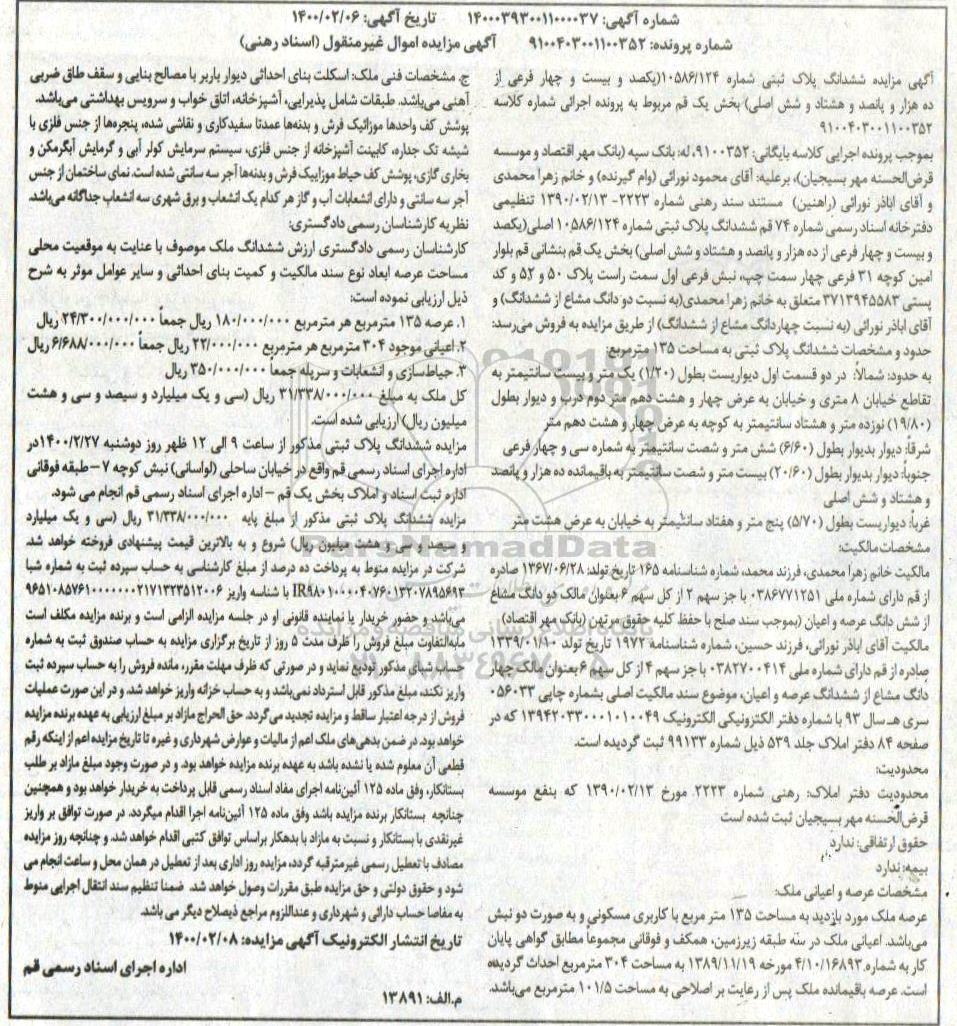 شماره آگهی: ۱۴۰۰۰۳۹۳۰۰۱۱۰۰۰۰۳۷ تاریخ آگهی: ۱۴۰۰/۰۲/۰۶
شماره پرونده: ۹۱۰۰۴۰۳۰۰۱۱۰۰۳۵۲ آگهی مزایده اموال غیرمنقول (اسناد رهنی)
آگهی مزایده ششدانگ پلاک ثبتی شماره ۱۰۵۸۶/۱۲۴(یکصد و بیست و چهار فرعی از
ده هزار و پانصد و هشتاد و شش اصلی) بخش یک قم مربوط به پرونده اجرائی شماره کلاسه
۹۱۰۰۴۰۳۰۰۱۱۰۰۳۵۲
بموجب پرونده اجرایی کلاسه بایگانی: ۹۱۰۰۳۵۲، له: بانک سپه (بانک مهر اقتصاد و موسسه
قرض‌الحسنه مهر بسیجیان)، برعلیه: آقای محمود نورائی (وام گیرنده) و خانم زهرا محمدی
و آقای اباذر نورائی (راهنین) مستند سند رهنی شماره ۲۲۲۳- ۱۳۹۰/۰۲/۱۳ تنظیمی
دفترخانه اسناد رسمی شماره ۷۴ قم ششدانگ پلاک ثبتی شماره ۱۰۵۸۶/۱۲۴ اصلی(یکصد
و بیست و چهار فرعی از ده هزار و پانصد و هشتاد و شش اصلی) بخش یک قم بنشانی قم بلوار
امین کوچه ۳۱ فرعی چهار سمت چپ، نبش فرعی اول سمت راست پلاک ۵۰ و ۵۲ و کد
پستی ۳۷۱۳۹۴۵۵۸۳ متعلق به خانم زهرا محمدی(به نسبت دو دانگ مشاع از ششدانگ) و
آقای اباذر نورائی (به نسبت چهاردانگ مشاع از ششدانگ) از طریق مزایده به فروش می‌رسد:
حدود و مشخصات ششدانگ پلاک ثبتی به مساحت ۱۳۵ مترمربع:
به حدود: شمالاً: در دو قسمت اول دیواریست بطول (۱/۲۰) یک متر و بیست سانتیمتر به
تقاطع خیابان ۸ متری و خیابان به عرض چهار و هشت دهم متر دوم درب و دیوار بطول
(۱۹/۸۰) نوزده متر و هشتاد سانتیمتر به کوچه به عرض چهار و هشت دهم متر
شرقاً: دیوار بدیوار بطول (۶/۶۰) شش متر و شصت سانتیمتر به شماره سی و چهار فرعی
جنوباً: دیوار بدیوار بطول (۲۰/۶۰) بیست متر و شصت سانتیمتر به باقیمانده ده هزار و پانصد
و هشتاد و شش اصلی
غرباً: دیواریست بطول (۵/۷۰) پنج متر و هفتاد سانتیمتر به خیابان به عرض هشت متر
مشخصات مالکیت:
مالکیت خانم زهرا محمدی، فرزند محمد، شماره شناسنامه ۱۶۵ تاریخ تولد: ۱۳۶۷/۰۶/۲۸ صادره
از قم دارای شماره ملی ۰۳۸۶۷۷۱۲۵۱ با جز سهم ۲ از کل سهم ۶ بعنوان مالک دو دانگ مشاع
از شش دانگ عرصه و اعیان (بموجب سند صلح با حفظ کلیه حقوق مرتهن (بانک مهر اقتصاد)
مالکیت آقای اباذر نورائی، فرزند حسین، شماره شناسنامه ۱۹۷۲ تاریخ تولد ۱۳۳۹/۰۱/۱۰
صادره از قم دارای شماره ملی ۰۳۸۲۷۰۰۴۱۴ با جزء سهم ۴ از کل سهم ۶ بعنوان مالک چهار
دانگ مشاع از ششدانگ عرصه و اعیان، موضوع سند مالکیت اصلی بشماره چاپی ۰۵۶۰۳۳
سری هـ سال ۹۳ با شماره دفتر الکترونیکی الکترونیک ۱۳۹۴۲۰۳۳۰۰۰۱۰۱۰۰۴۹ که در
صفحه ۸۴ دفتر املاک جلد ۵۳۹ ذیل شماره ۹۹۱۳۳ ثبت گردیده است.
محدودیت:
محدودیت دفتر املاک: رهنی شماره ۲۲۲۳ مورخ ۱۳۹۰/۰۲/۱۳ که بنفع موسسه
قرض‌الحسنه مهر بسیجیان ثبت شده است
حقوق ارتفاقی: ندارد
بیمه: ندارد
مشخصات عرصه و اعیانی ملک:
عرصه ملک مورد بازدید به مساحت ۱۳۵ متر مربع با کاربری مسکونی و به صورت دو نبش
می‌باشد. اعیانی ملک در سه طبقه زیرزمین، همکف و فوقانی مجموعاً مطابق گواهی پایان
کار به شماره ۴/۱۰/۱۶۸۹۳ مورخه ۱۳۸۹/۱۱/۱۹ به مساحت ۳۰۴ مترمربع احداث گردیده
است. عرصه باقیمانده ملک پس از رعایت بر اصلاحی به مساحت ۱۰۱/۵ مترمربع می‌باشد.
ج. مشخصات فنی ملک: اسکلت بنای احداثی دیوار باربر با مصالح بنایی و سقف طاق ضربی
آهنی می‌باشد. طبقات شامل پذیرایی، آشپزخانه، اتاق خواب و سرویس بهداشتی می‌باشد.
پوشش کف واحدها موزائیک فرش و بدنه‌ها عمدتا سفیدکاری و نقاشی شده، پنجره‌ها از جنس فلزی با
شیشه تک جداره، کابینت آشپزخانه از جنس فلزی، سیستم سرمایش کولر آبی و گرمایش آبگرمکن و
بخاری گازی، پوشش کف حیاط موزاییک فرش و بدنه‌ها آجر سه سانتی شده است. نمای ساختمان از جنس
آجر سه سانتی و دارای انشعابات آب و گاز هر کدام یک انشعاب و برق شهری سه انشعاب جداگانه می‌باشد.
نظریه کارشناسان رسمی دادگستری:
کارشناسان رسمی دادگستری ارزش ششدانگ ملک موصوف با عنایت به موقعیت محلی
مساحت عرصه ابعاد نوع سند مالکیت و کمیت بنای احداثی و سایر عوامل موثر به شرح
ذیل ارزیابی نموده است:
۱. عرصه ۱۳۵ مترمربع هر مترمربع ۱۸۰/۰۰۰/۰۰۰ ریال جمعاً ۲۴/۳۰۰/۰۰۰/۰۰۰ ریال
۲. اعیانی موجود ۳۰۴ مترمربع هر مترمربع ۲۲/۰۰۰/۰۰۰ ریال جمعاً ۶/۶۸۸/۰۰۰/۰۰۰ ریال
۳. حیاط‌سازی و انشعابات و سرپله جمعاً ۳۵۰/۰۰۰/۰۰۰ ریال
کل ملک به مبلغ ۳۱/۳۳۸/۰۰۰/۰۰۰ ریال (سی و یک میلیارد و سیصد و سی و هشت
میلیون ریال) ارزیابی شده است.
مزایده ششدانگ پلاک ثبتی مذکور از ساعت ۹ الی ۱۲ ظهر روز دوشنبه ۱۴۰۰/۲/۲۷در
اداره اجرای اسناد رسمی قم واقع در خیابان ساحلی (لواسانی) نبش کوچه ۷ – طبقه فوقانی
اداره ثبت اسناد و املاک بخش یک قم – اداره اجرای اسناد رسمی قم انجام می شود.
مزایده ششدانگ پلاک ثبتی مذکور از مبلغ پایه ۳۱/۳۳۸/۰۰۰/۰۰۰ ریال (سی و یک میلیارد
و سیصد و سی و هشت میلیون ریال) شروع و به بالاترین قیمت پیشنهادی فروخته خواهد شد.
شرکت در مزایده منوط به پرداخت ده درصد از مبلغ کارشناسی به حساب سپرده ثبت به شماره شبا
IR۹۸۰۱۰۰۰۰۴۰۷۶۰۱۳۲۰۷۸۹۵۶۹۳ با شناسه واریز ۹۶۵۱۰۸۵۷۶۱۰۰۰۰۰۰۰۲۱۷۱۳۲۳۵۱۲۰۰۶
می‌باشد و حضور خریدار یا نماینده قانونی او در جلسه مزایده الزامی است و برنده مزایده مکلف است
مابه‌التفاوت مبلغ فروش را ظرف مدت ۵ روز از تاریخ برگزاری مزایده به حساب صندوق ثبت به شماره
حساب شبای مذکور تودیع نماید و در صورتی که ظرف مهلت مقرر، مانده فروش را به حساب سپرده ثبت
واریز نکند، مبلغ مذکور قابل استرداد نمی‌باشد و به حساب خزانه واریز خواهد شد. و در این صورت عملیات
فروش از درجه اعتبار ساقط و مزایده تجدید می‌گردد. حق الحراج مازاد بر مبلغ ارزیابی به عهده برنده مزایده
خواهد بود. در ضمن بدهی‌های ملک اعم از مالیات و عوارض شهرداری و غیره تا تاریخ مزایده اعم از اینکه رقم
قطعی آن معلوم شده یا نشده باشد به عهده برنده مزایده خواهد بود. و در صورت وجود مبلغ مازاد بر طلب
بستانکار، وفق ماده ۱۲۵ آئین‌نامه اجرای مفاد اسناد رسمی قابل پرداخت به خریدار خواهد بود و همچنین
چنانچه بستانکار برنده مزایده باشد وفق ماده ۱۲۵ آئین‌نامه اجرا اقدام میگردد. در صورت توافق بر واریز
غیرنقدی با بستانکار و نسبت به مازاد با بدهکار براساس توافق کتبی اقدام خواهد شد. و چنانچه روز مزایده
مصادف با تعطیل رسمی غیرمترقبه گردد، مزایده روز اداری بعد از تعطیل در همان محل و ساعت انجام می
شود و حقوق دولتی و حق مزایده طبق مقررات وصول خواهد شد. ضمنا تنظیم سند انتقال اجرایی منوط
به مفاصا حساب دارائی و شهرداری و عنداللزوم مراجع ذیصلاح دیگر می باشد.
تاریخ انتشار الکترونیک آگهی مزایده: ۱۴۰۰/۰۲/۰۸
اداره اجرای اسناد رسمی قم
م.الف: ۱۳۸۹۱
ParsNamadData